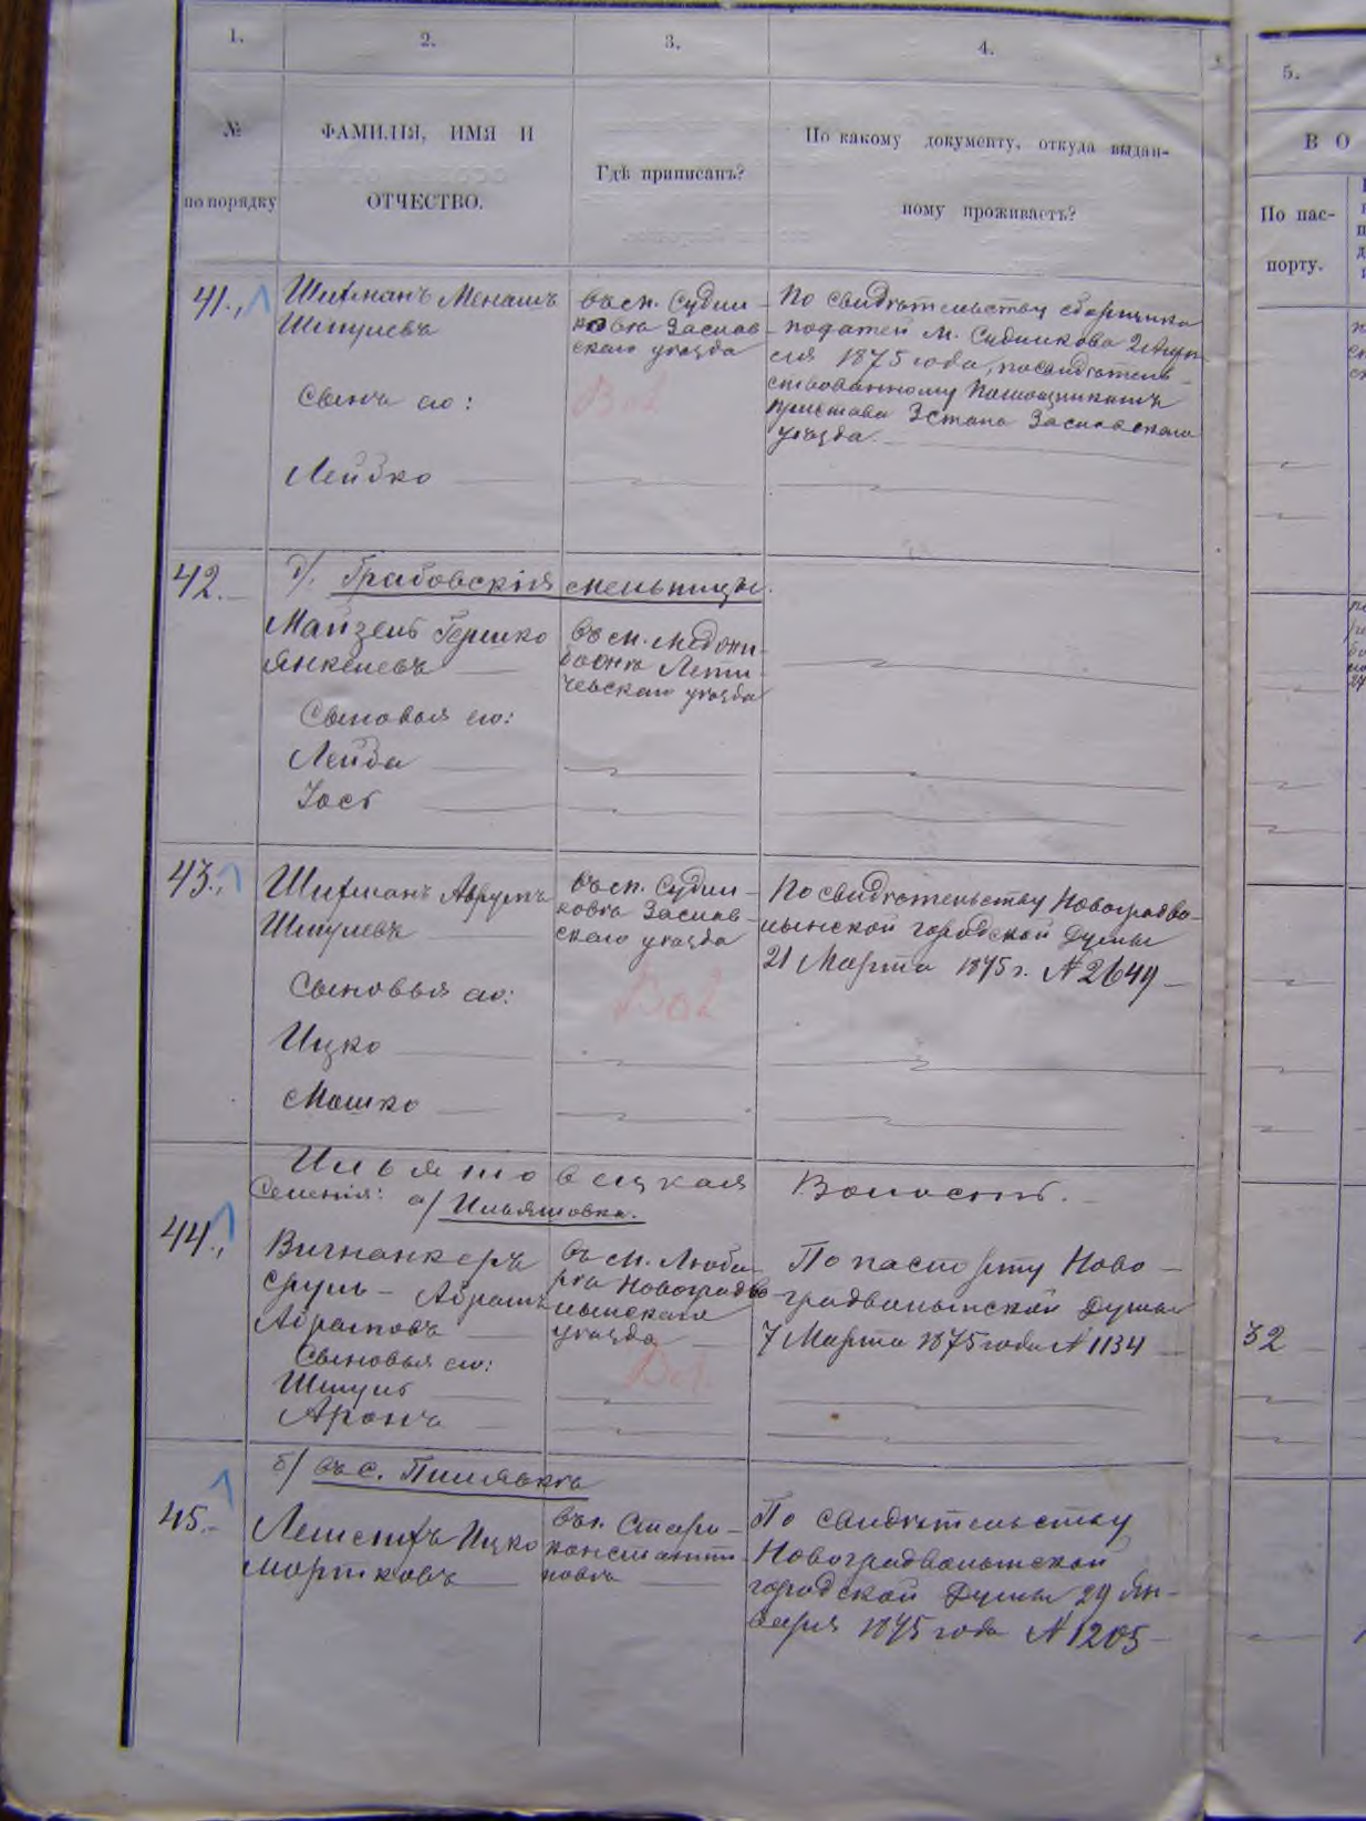 1. 2. 3. 4.
№ по порядку
ФАМИЛІЯ, ИМЯ И
ОТЧЕСТВО.
Гдѣ приписанъ?
По какому документу, откуда выдан-
ному проживаетъ?
5.
В О
По пас-
порту.
41.
Шифманъ Менашъ
Шмулевъ
Сынъ его:
Лейзко
въ м. Судил
ковѣ Заслав
скаго уѣзда
По свидѣтельству сборщика
податей м. Судилкова 2 Апрѣ
ля 1875 года, посвидѣтель-
ствованному Помощникомъ
Пристава 3 Стана Заславскаго
уѣзда.
42.
Грабовскія мельницы.
Майзель Гершко
Янкелевъ
Сыновья его:
Лейба
Іось
въ м. Меджи
божѣ Лети-
чевскаго уѣзда
43.
Шифманъ Аврумъ
Шмулевъ
Сыновья его:
Ицко
Мошко
въ м. Судил-
ковѣ Заслав-
скаго уѣзда
По свидѣтельству Новоградво-
лынской городской Думы
21 Марта 1875 г. № 2649
Ильяшовецкая Волость.
Селенія: а/ Ильяшовка.
44.
Сруль - Абрамъ
Абрамовъ
Сыновья его:
Шмуль
Аронъ
въ м. Люба
рѣ Новоградво
лынскаго
уѣзда
По паспорту Ново-
градволынской Думы
7 Марта 1875 года № 1134
32
б/ въ с.
45.
Ицко
Мортковъ
въ г. Старо-
константи-
новѣ
По свидѣтельству
Новоградволынской
городской Думы 29 Ян-
варя 1875 года № 1205